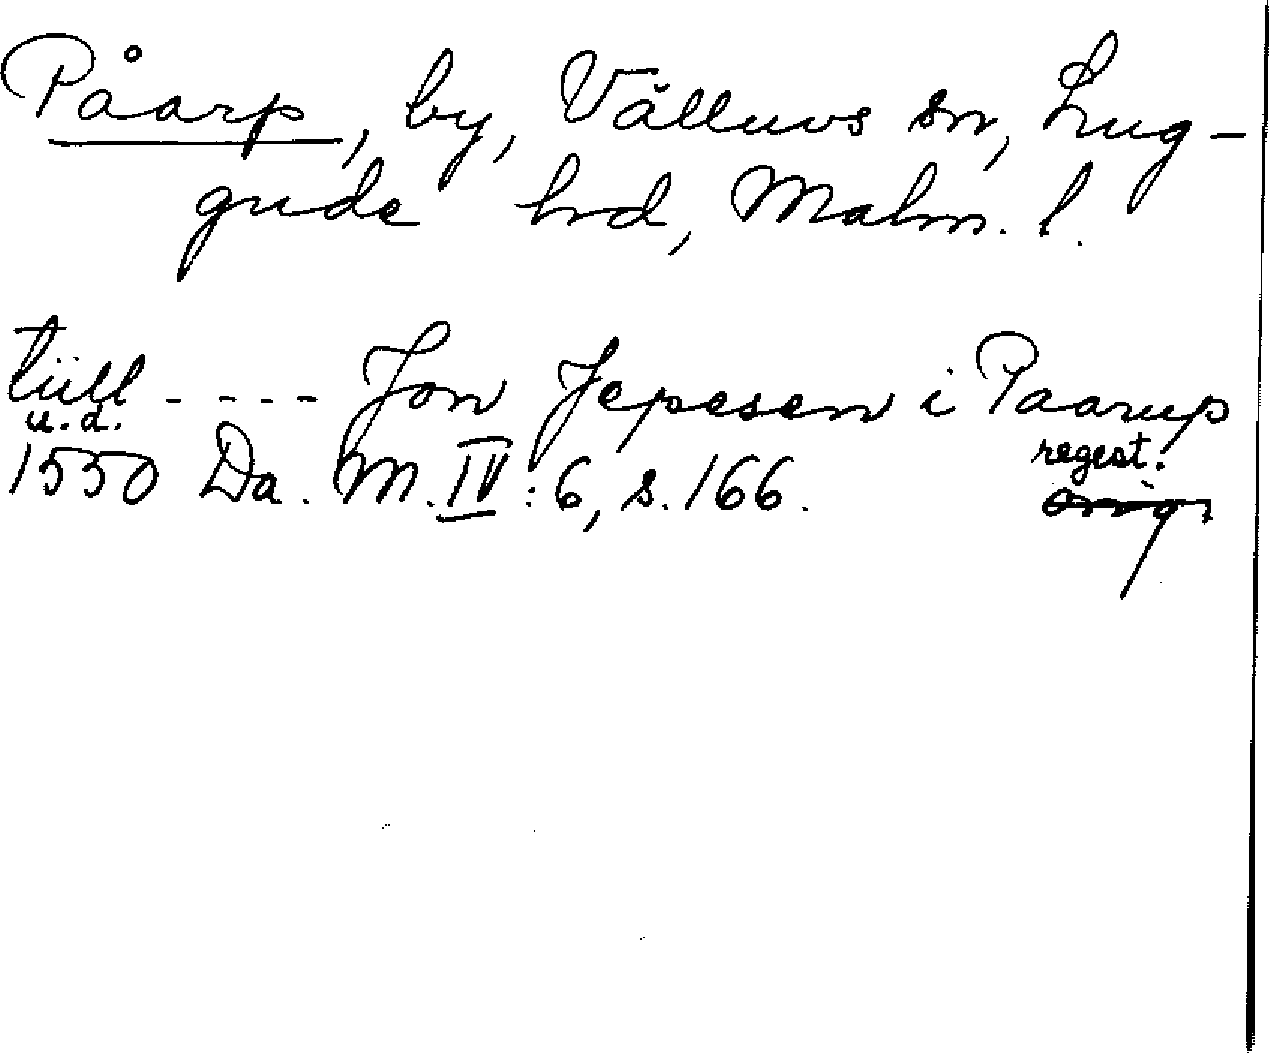 Påarp, by, Välluvs sn, Lug-
gude hrd, Malm. l.
tiill - - - - Jon Jepesen i Paarup
u. d.
1550 Da. M. IV: 6, s. 166. regest.
orig.